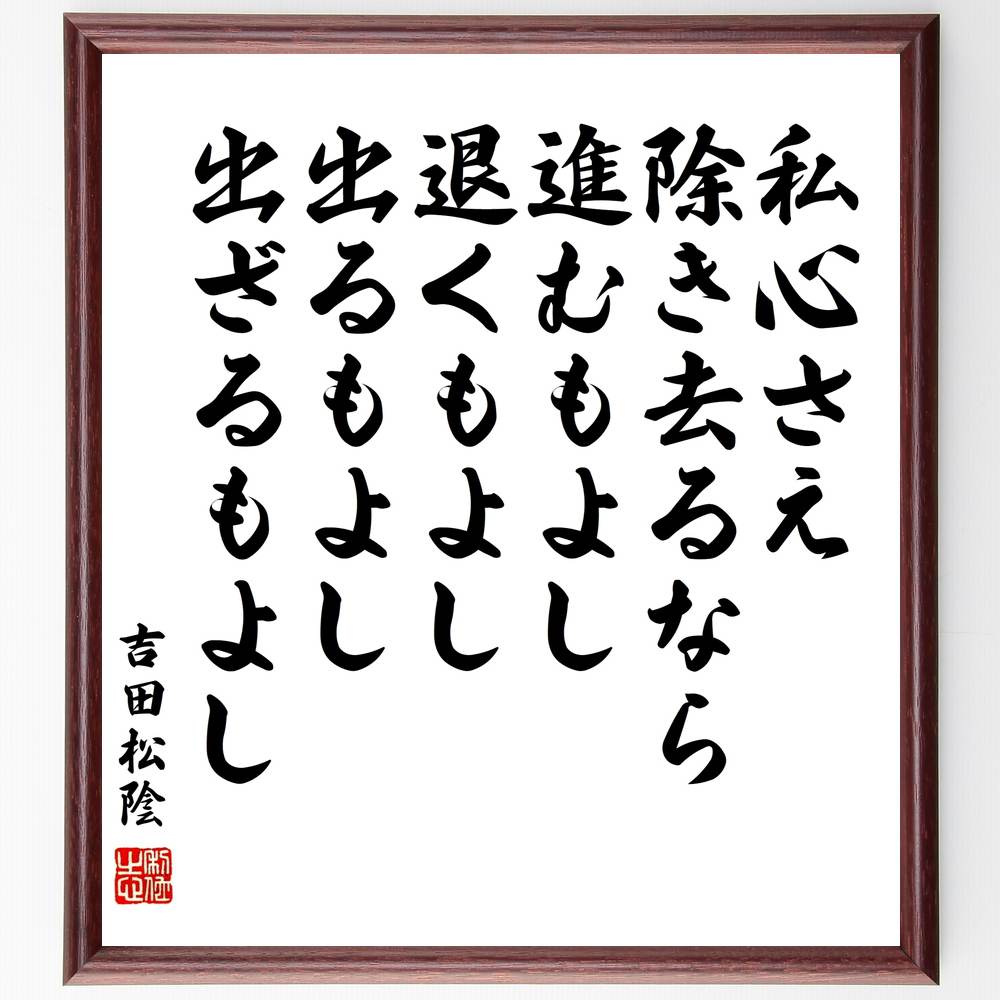 私心さえ
除き去るなら
進むもよし
退くもよし
出るもよし
出ざるもよし
吉田松陰